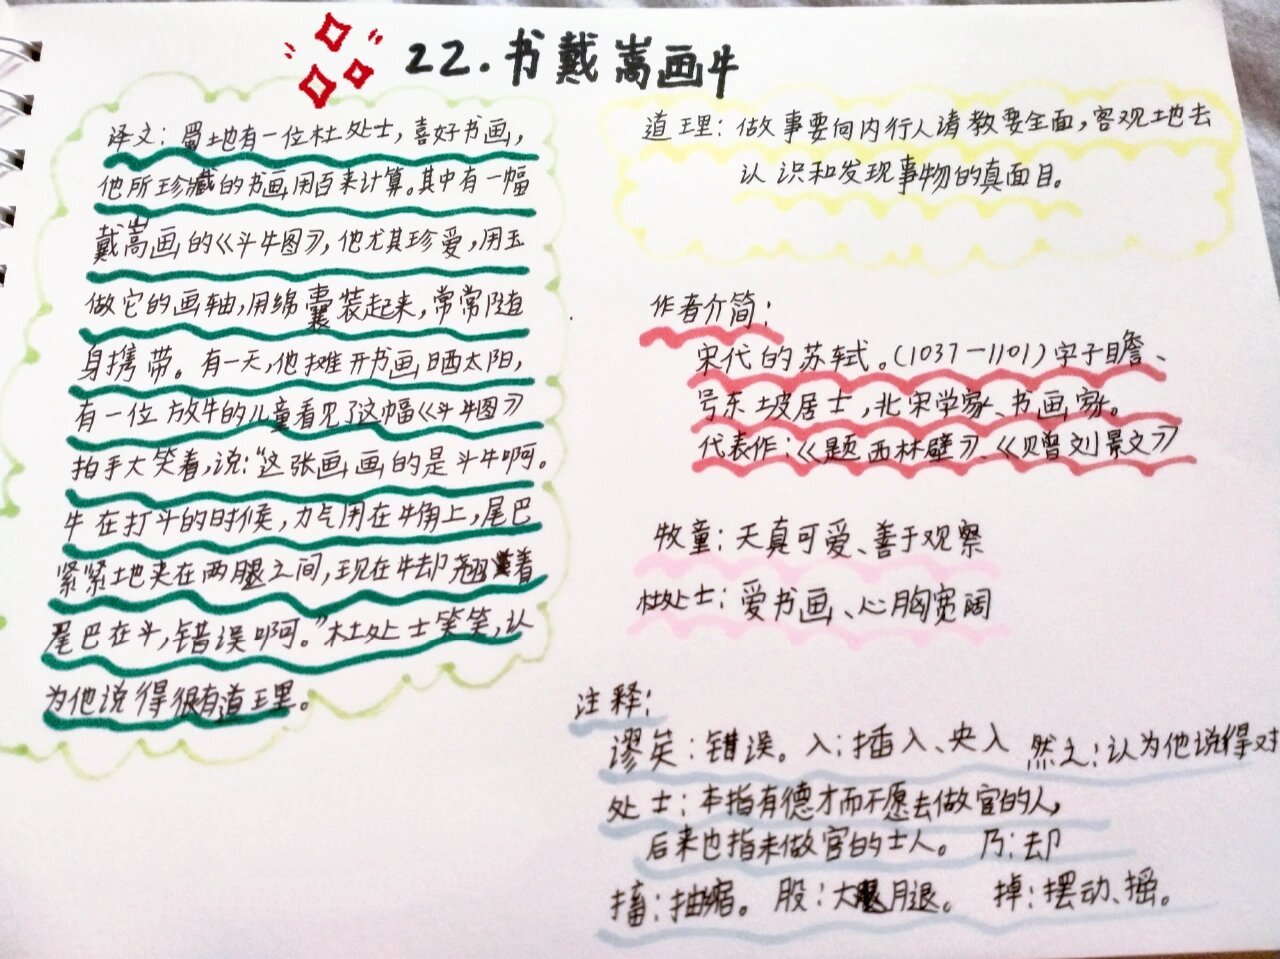 22.书戴嵩画牛
译文：蜀地有一位杜处士，喜好书画，
他所珍藏的书画用百来计算。其中有一幅
戴嵩画的《斗牛图》，他尤其珍爱，用玉
做它的画轴，用绵囊装起来，常常随
身携带。有一天，他摊开书画晒太阳，
有一位放牛的儿童看见了这幅《斗牛图》
拍手大笑着，说："这张画画的是斗牛啊。
牛在打斗的时候，力气用在牛角上，尾巴
紧紧地夹在两腿之间，现在牛却翘着
尾巴在斗，错误啊。"杜处士笑笑，认
为他说得很有道理。
道理：做事要向内行人请教要全面，客观地去
认识和发现事物的真面目。
作者介简：
宋代的苏轼。(1037－1101)字子瞻、
号东坡居士，北宋学家、书画家。
代表作：《题西林壁》、《赠刘景文》
牧童：天真可爱、善于观察
杜处士：爱书画、心胸宽阔
注释：
谬矣：错误。入：插入、夹入 然之：认为他说得对
处士：本指有德才而不愿去做官的人，
后来也指未做官的士人。 乃：却
搐：抽缩。 股：大腿。 掉：摆动、摇。